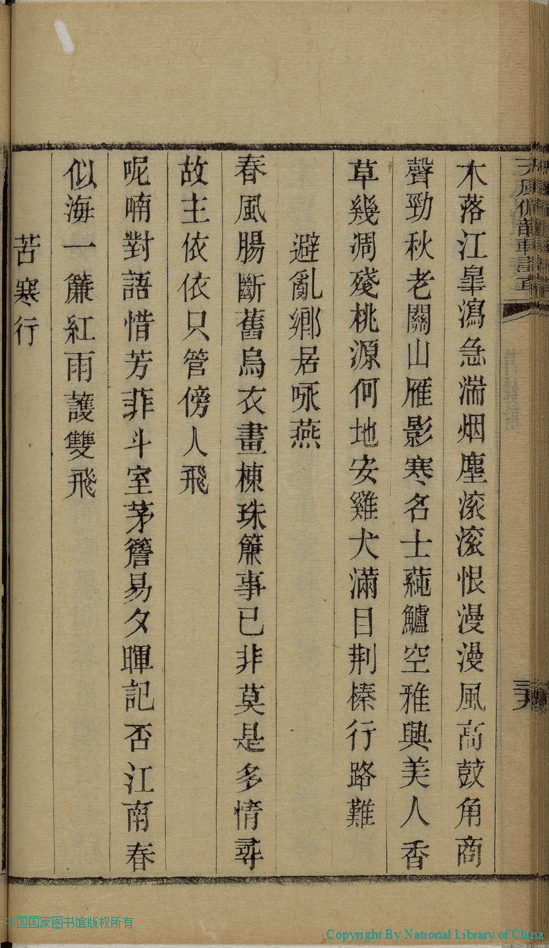 木落江臯瀉急湍烟塵滚滚恨漫漫風高鼓角商
聲勁秋老關山雁影寒名士蒓鱸空雅興美人香
草幾凋殘桃源何地安雞犬滿目荆榛行路難
避亂鄉居咏燕
春風腸斷舊烏衣畫棟珠簾事已非莫是多情尋
故主依依只管傍人飛
呢喃對語惜芳菲斗室茅簷易夕暉記否江南春
似海一簾紅雨護雙飛
苦寒行
中国国家图书馆版权所有
Copyright By National Library of China